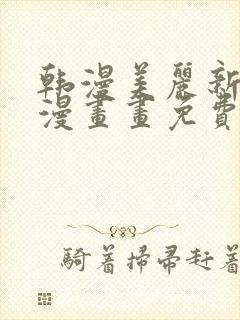 韩漫美麗新
漫畫畫免費
騎着掃帚赶着